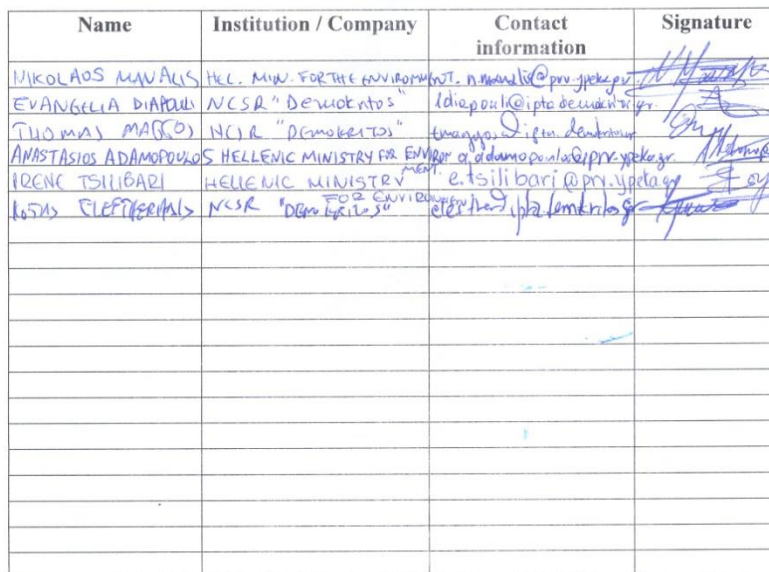 Name Institution / Company Contact information Signature
NIKOLAOS MANALIS HEL. MIN. FOR THE ENVIRONMENT. n.manalis@prv.ypeka.gr
EVANGELIA DIAPOULI NCSR "Demokritos" ldiapouli@ipta.demokritos.gr
THOMAS MAGGOS NCSR "DEMOKRITOS"
ANASTASIOS ADAMOPOULOS HELLENIC MINISTRY FOR ENVIRONMENT. a.adamopoulos@prv.ypeka.gr
IRENE TSILIBARI HELLENIC MINISTRY FOR ENVIRONMENT e.tsilibari@prv.ypeka.gr
ELEFTHERIADIS NCSR "DEMOKRITOS"